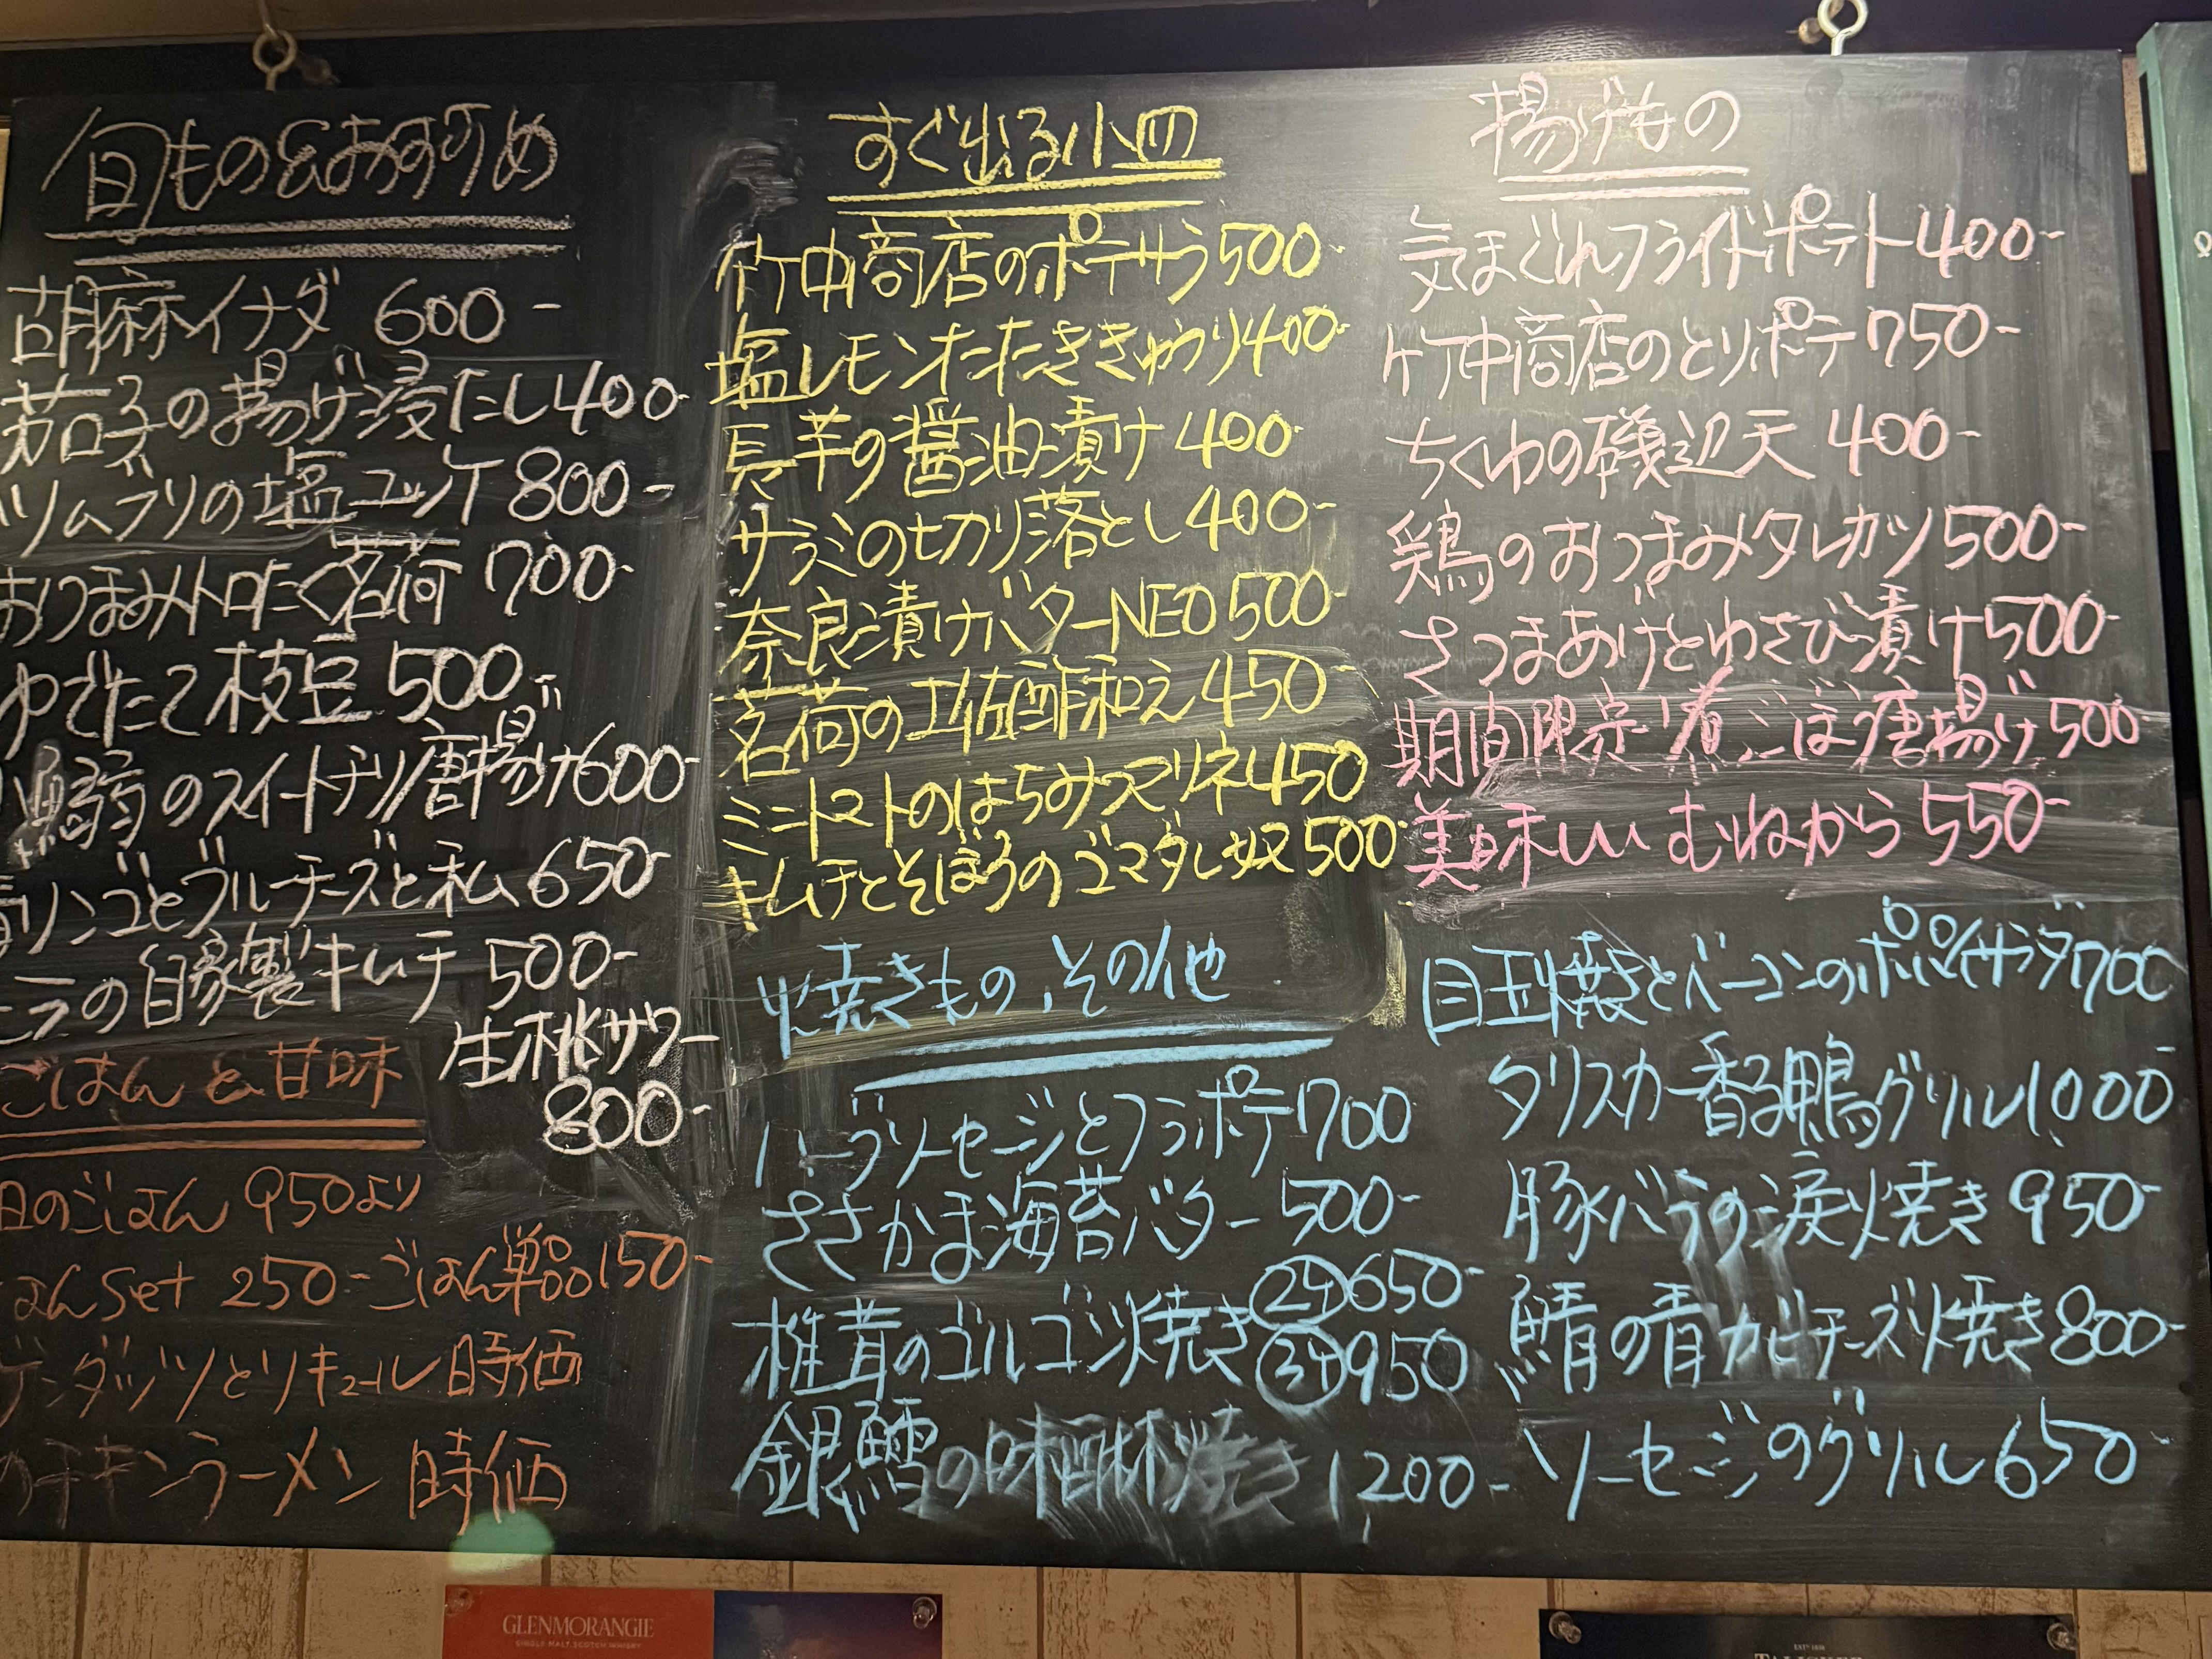 旬もの&おすすめ
胡麻イナダ 600-
茄子の揚げ浸たし400-
ツムブリの塩ユッケ 800-
おつまみトロたく茗荷 700-
ゆでたて枝豆 500-
のスイートチリ唐揚げ600-
リンゴとブルーチーズと私 650-
ニラの自家製キムチ 500-
生桃サワー
800-
ごはんと甘味
日のごはん 950より
はんset 250-ごはん単品150-
ゲンダッツとリキュール 時価
チキンラーメン 時価
すぐ出る小皿
竹中商店のポテサラ500-
塩レモンたたききゅうり400-
長芋の醤油漬け 400-
サラミの切り落とし400-
奈良漬けバターNEO 500-
茗荷の土佐酢和え 450-
ミニトマトのはちみつマリネ450
キムチとそぼろのゴマダレ奴500-
焼きもの、その他
ハーブソーセージとフラポテ700
ささかま海苔バター 500-
椎茸のゴルゴンゾ焼き ②ケ650-
③ケ950
銀鱈の味醂焼き 1200-
揚げもの
気まぐれフライドポテト400-
竹中商店のとりポテ750-
ちくわの磯辺天 400-
鶏のおつまみタレカツ500-
さつまあげとわさび漬け500-
期間限定煮ごぼう唐揚げ500-
美味しい むねから 550-
目玉焼きとベーコンのポパイサラダ700
タリスカー香る鴨グリル1000-
豚バラの炭火焼き 950-
鯖の青カビチーズ焼き800-
ソーセージのグリル650-
GLENMORANGIE
SINGLE MALT SCOTCH WHISKY
TALISKER